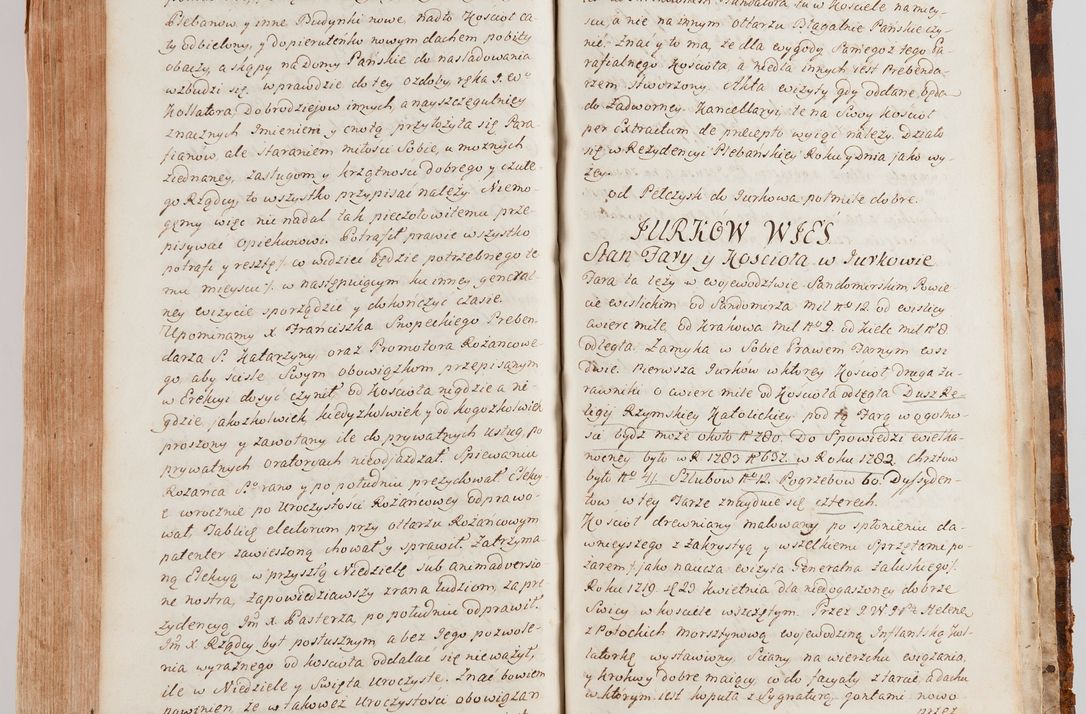 Plebanow y inne Budynki nowe, nadto Koscioł ca-
ły odbielony, y dopieruteńko nowym dachem pobity
obaczy, a skąpy na Domy Pańskie do nasladowania
wzbudzi się. wprawdzie do tey ozdoby ręka J. W.
Kollatora, Dobrodziejow innych, a nayszczegulniey
znacznych Imieniem y cnotą przyłożyła się Para-
fianow, ale staraniem miłosci Sobie, u możnych
ziednaney, zasługom y krzątnosci dobrego y czułe-
go Rządcy, to wszystko przypisać należy. Niemo-
gęmy więc nic nadal tak pieczołowitemu prze-
pisywać opiekunowi. Potrafił prawie wszystko
potrafi y resztę /: w widzieć będzie potrzebnego te-
mu mieyscu :/ w następuiącym ku inney general-
ney wizycie sporządzić y dokończyć czasie.
Upominamy X Franciszka Snopeckiego Preben-
darza S. Katarzyny oraz Promotora Rożancowe-
go aby scisle Swym obowiązkom przepisanym
w Erekcyi dosyć czynił od Kosciola nigdzie a ni-
gdzie, jakozkolwiek, kiedyzkolwiek y od kogozkolwiek
proszony y zawołany ile do prywatnych usług, po
prywatnych oratoryach nieodjazdzał. Spiewaniu
Rożanca S. rano y po południu prezydował Elekcy-
e wrocznie po Uroczystosci Rożancowey odprawo-
wał Tablicę electorum przy ołtarzu Rożancowym
patenter zawieszoną chował y sprawił. Zatrzyma-
ną Elekcyą w przyszłą Niedzielę sub animadversio-
ne nostra, zapowiedziawszy zrana ludziom, za pre-
zydencyą Jm X. Pasterza po południu odprawił.
Jm X. Rządcy był posłusznym a bez Jego pozwole-
nia wyraznego od koscioła oddalać się nieważył,
ile w Niedziele y Swięta Uroczyste. Znać bowiem
powinien że w takowez Uroczystosci obowiązan
su a nie na innym ołtarzu Błagalnie Pańskie czy-
nić. Znać y to ma, że dla wygody Samego z tego Pa-
rafialnego Koscioła a nie dla innych iest Prebenda-
rzem stworzony. Akta wizyty gdy oddane będą
do Zadworney Kancellaryi, te na Swoy Kosciol
per Extractum de præcepto wyiąć należy. Działo
się w Rezydencyi Plebańskiey Roku y dnia jako wy-
zey
od Pełczysk do Jurkowa poł mile dobre.
JURKÓW WIEŚ
Stan Fary y Koscioła w Jurkowie
Fara ta leży w wojewodztwie Sandomirskim Powie-
cie wislickim od Sandomirza mil Nro 12. od wislicy
cwierc mile, od Krakowa mil Nro 9. od Kielc mil Nr 8
odlegta. Zamyka w Sobie Prawem Farnym wsi
Dwie. Pierwsza Jurkow w ktorey Kosciol druga Zu-
rawniki o cwierc mile od Koscioła odległa. Dusz Re-
ligij Rzymskiey Katolickiey pod tę Farę w ogolno-
sci bydz może około Nr 780. Do Spowiedzi wielka-
nocney było w R 1783 Nr 637. w Roku 1782. chrztow
było Nro 41. Szlubow Nro 12. Pogrzebow 60. Dyssyden-
tow w tey Farze znayduie się czterech.
Kosciół drewniany malowany po spłonieniu da-
wnieyszego z Zakrystyą y wszelkiemi Sprzętami po-
żarem /: jako naucza wizyta Generalna Załuskiego :/
Roku 1719. d 23 Kwietnia dla niedogaszoney dobrze
Swicy w kosciele wszczętym. Przez J. W. Helenę
z Potockich morsztynową wojewodzinę Inflantską Kol-
latorkę wystawiony. Sciany na wierzchu wiązania
y krokwy dobre maiący co do facyaty z tarcic a dachu
w ktorym iest kopuła z Sygnaturą gontami nowo
przez